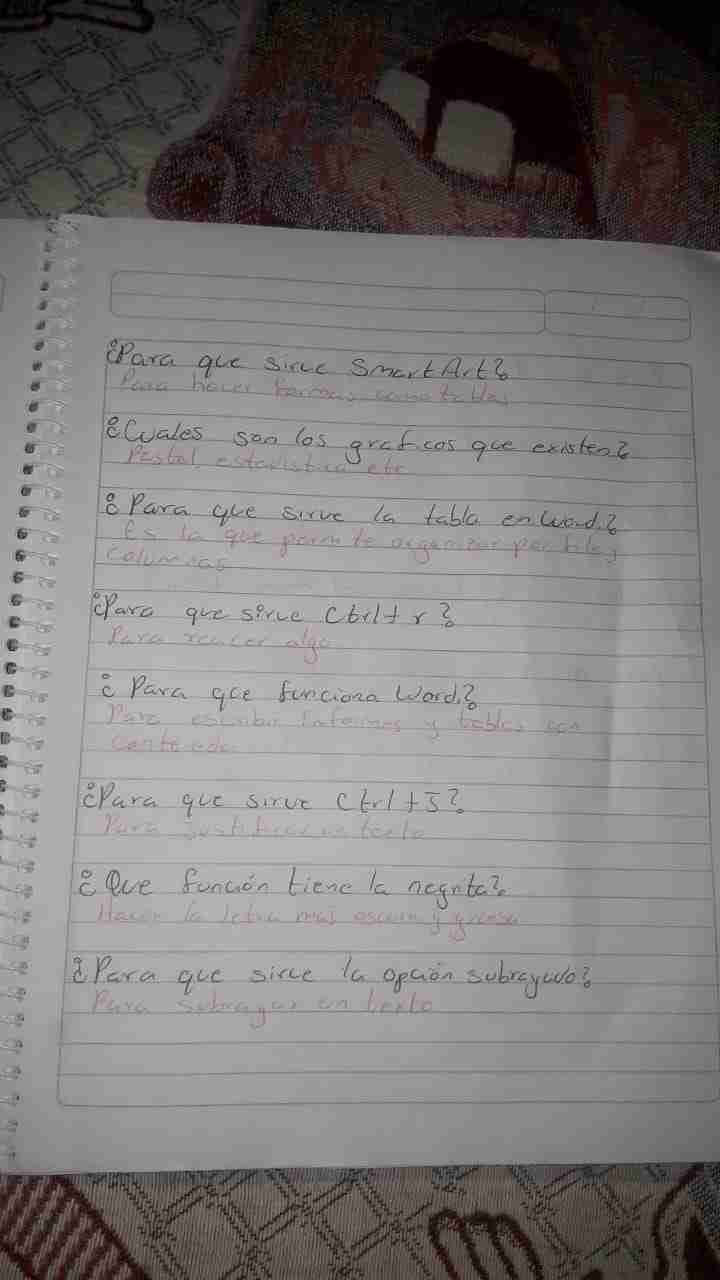 ¿Para que sirve SmartArt?
Para hacer formas como tablas
¿Cuales son los graficos que existen?
Pastal, estadistica etc
¿Para que sirve la tabla en Word?
Es la que permite organizar por filas y
columnas
¿Para que sirve Ctrl+r?
Para reacer algo
¿Para que funciona Word?
Para escribir informes y tablas con
contenido
¿Para que sirve Ctrl+J?
Para justificar un texto
¿Que función tiene la negrita?
Hacer la letra mas oscura y gruesa
¿Para que sirve la opción subrayado?
Para subrayar un texto